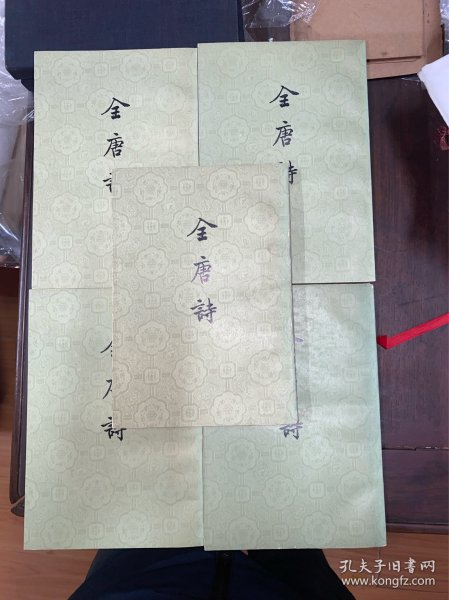 全唐詩
全唐詩
全唐詩
詩
詩
孔夫子旧书网
www.kongfz.com